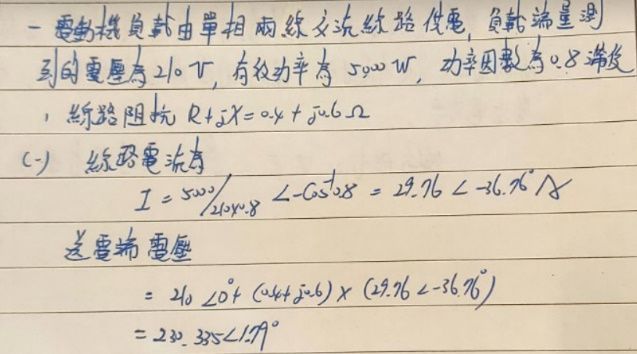 一電動機負載由單相兩線交流線路供電,負載端量測
到的電壓為210V,有效功率為5000W,功率因數為0.8滯後
,線路阻抗R+jX=0.4+j0.6Ω
(一) 線路電流為
I=5000/210×0.8 ∠-Cos⁻¹0.8 = 29.76∠-36.76° A
送電端電壓
= 210∠0°+(0.4+j0.6)×(29.76∠-36.76°)
= 230.335∠1.79°